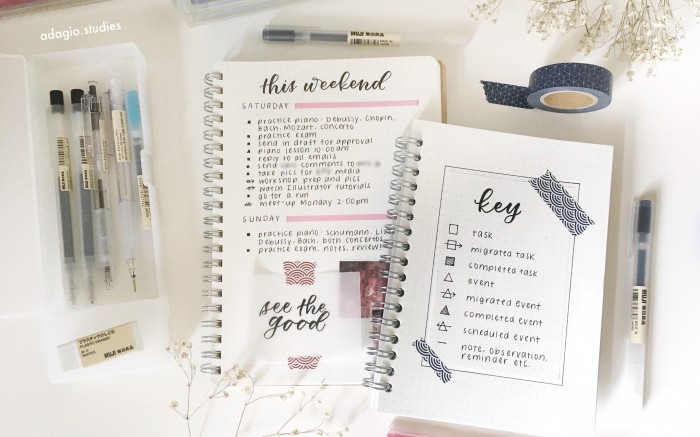 adagio.studies
this weekend
SATURDAY
practice piano: Debussy, Chopin,
Bach, Mozart, concerto
practice exam
send in draft for approval
piano lesson 10:00am
reply to all emails
send comments to
take pics for media
workshop prep and pics
watch Illustrator tutorials
go for a run
meet-up Monday 2:00pm
SUNDAY
practice piano: Schumann,
Debussy, Bach, both concertos
practice exam, notes, review!
see the
good
key
task
migrated task
completed task
event
migrated event
completed event
scheduled event
note, observation,
reminder etc.
MUJI 無印良品
MUJI 無印良品
MUJI 無印良品